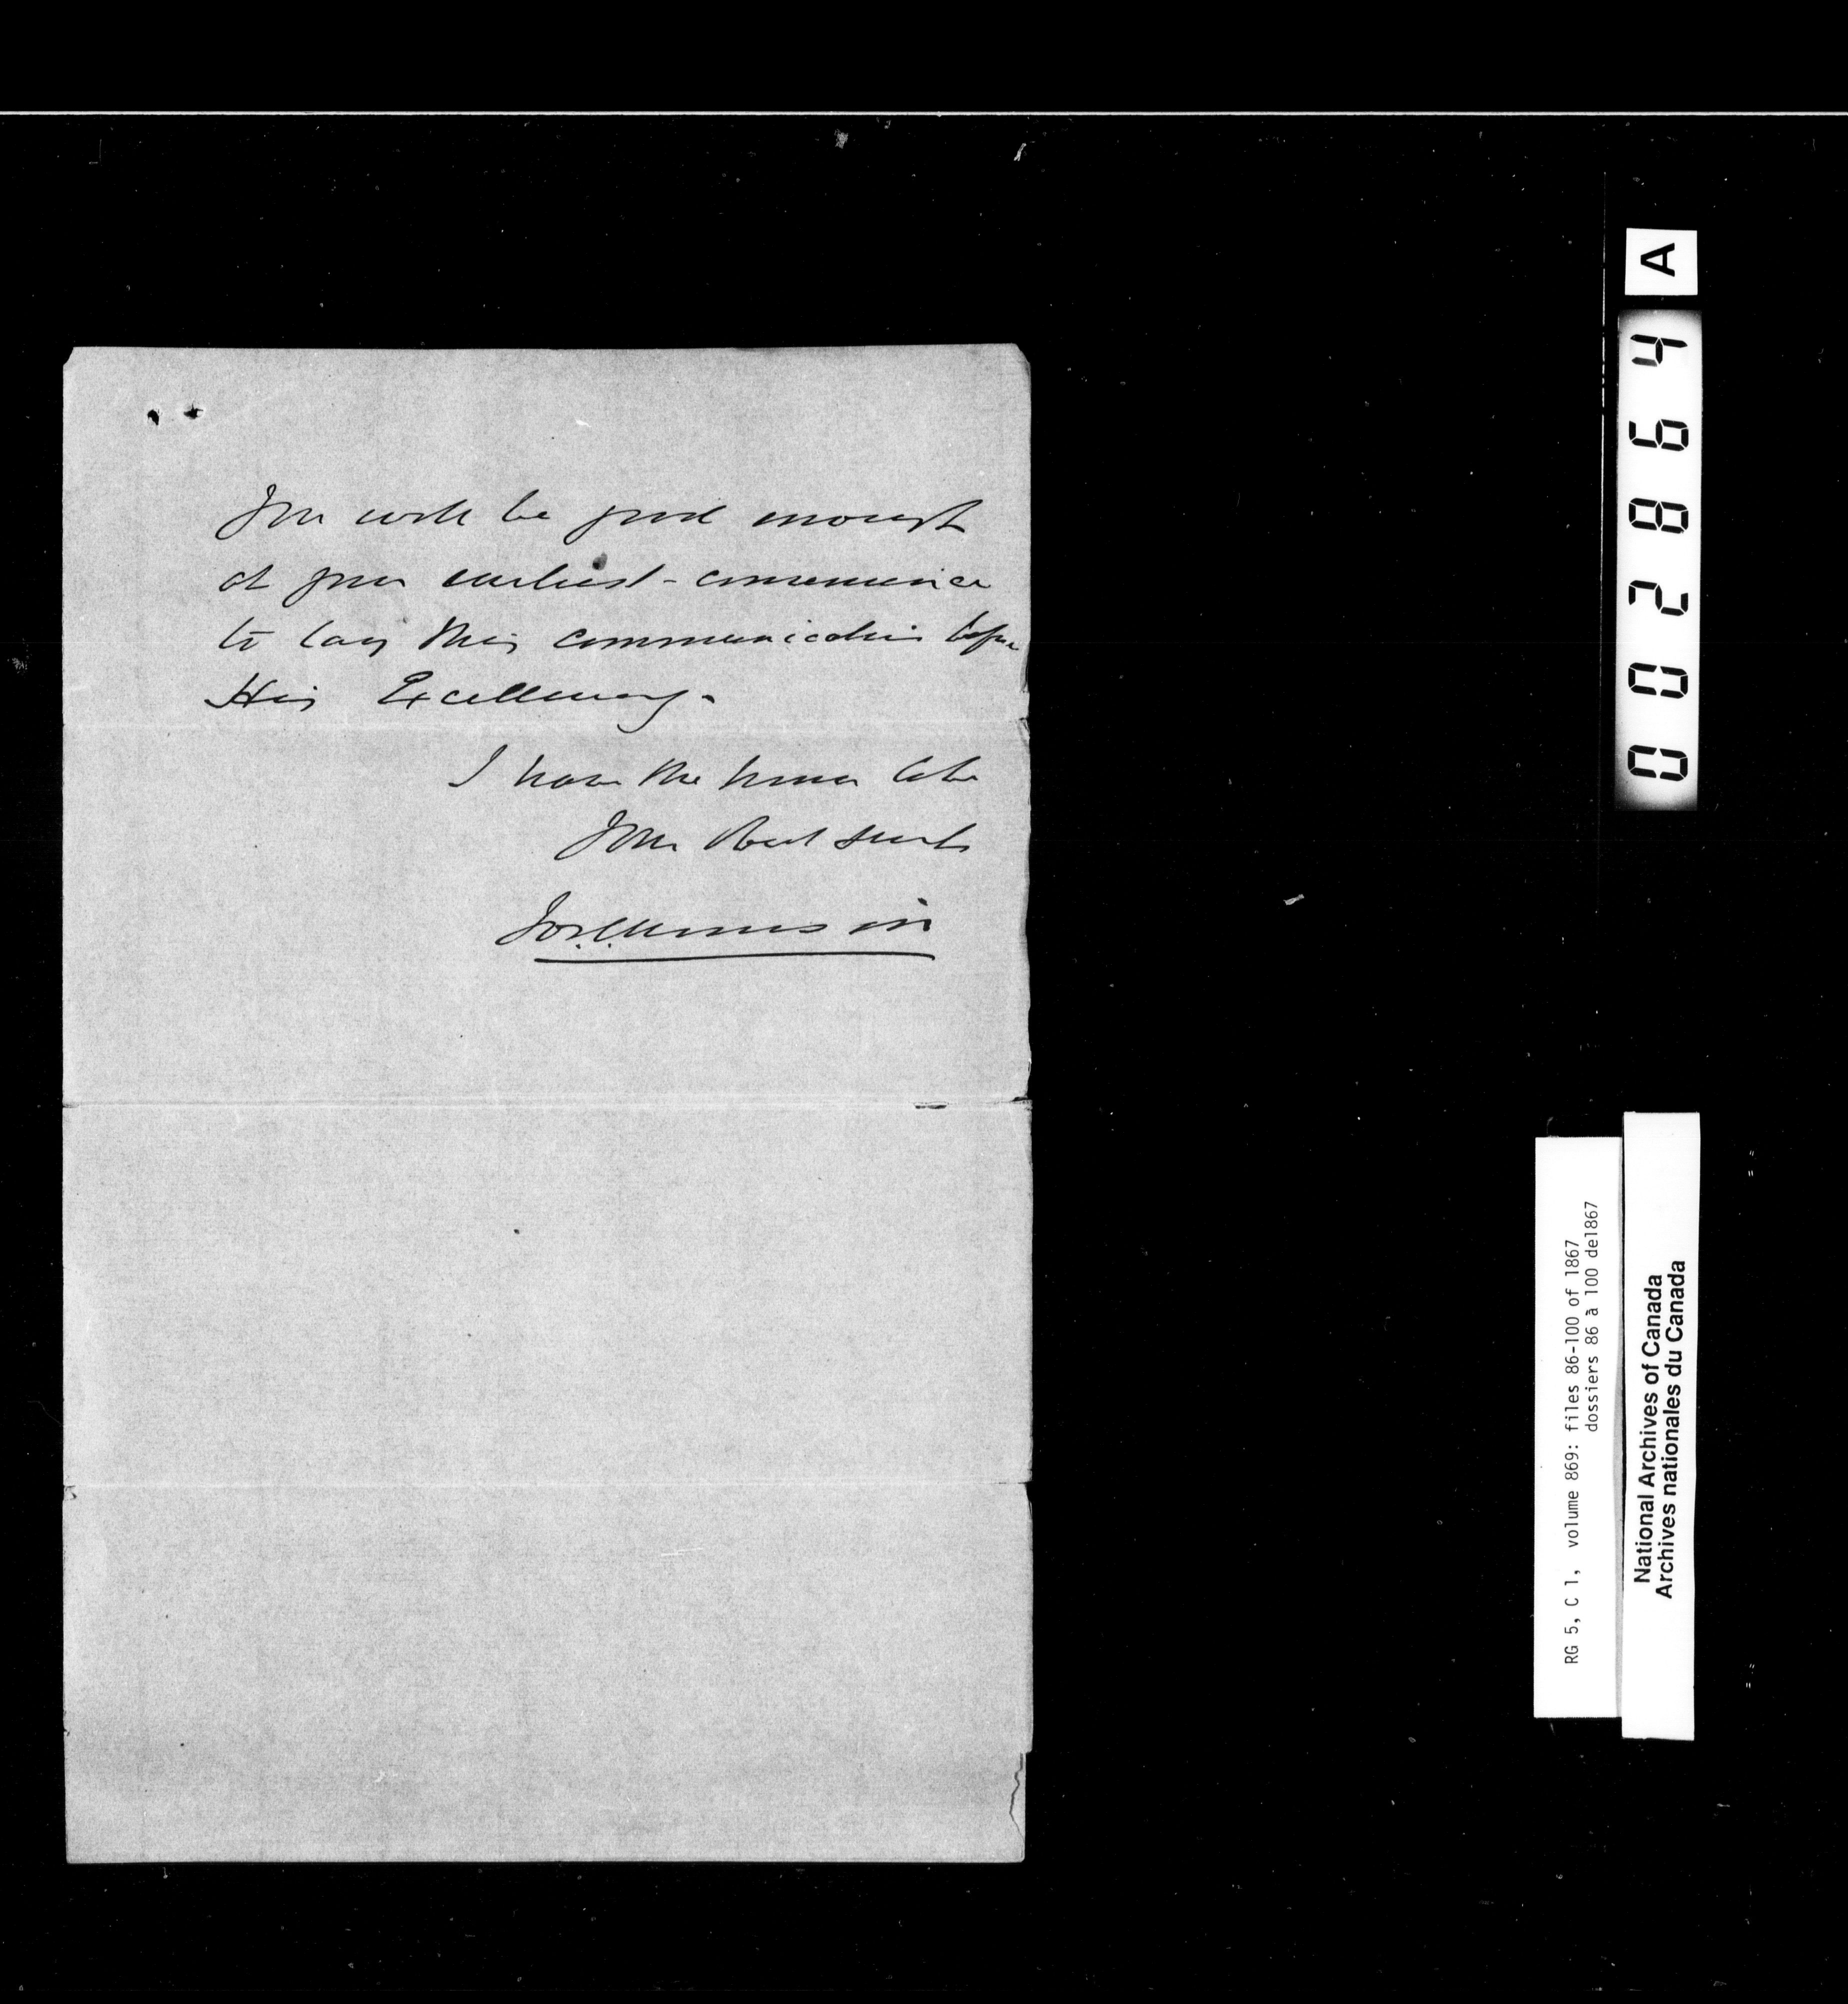 You will be good enough
at your earliest convenience
to lay this communication before
His Excellency.
I have the honor to be
Your Obed Servt
A
002864
RG 5, C 1, volume 869: files 86-100 of 1867
dossiers 86 à 100 de1867
National Archives of Canada
Archives nationales du Canada